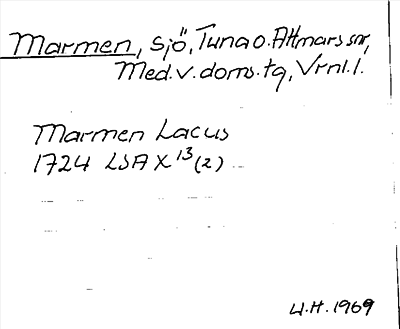 Marmen, sjö, Tuna o. Attmars snr,
Med. v. doms. tg, Vrnl. l.
Marmen Lacus
1724 LSA X 13 (2)
W.H. 1969